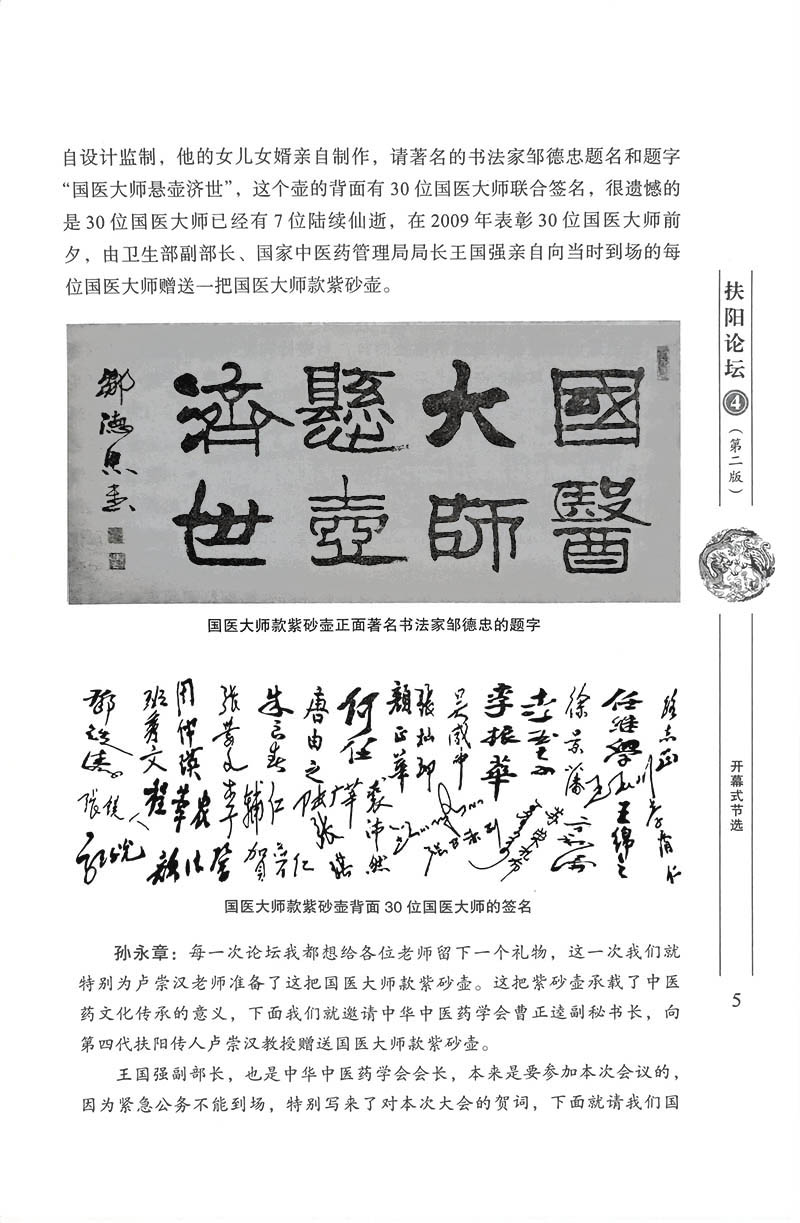 自设计监制，他的女儿女婿亲自制作，请著名的书法家邹德忠题名和题字
“国医大师悬壶济世”，这个壶的背面有 30 位国医大师联合签名，很遗憾的
是 30 位国医大师已经有 7 位陆续仙逝，在 2009 年表彰 30 位国医大师前
夕，由卫生部副部长、国家中医药管理局局长王国强亲自向当时到场的每
位国医大师赠送一把国医大师款紫砂壶。
國醫
大師
懸壺
濟世
鄒德忠書
国医大师款紫砂壶正面著名书法家邹德忠的题字
路志正
任继學
王绵之
徐景藩
李振華
吴咸中
張灿玾
顏正華
裘沛然
何任
唐由之
朱良春
賀普仁
班秀文
周仲瑛
程莘农
鄧鐵涛
国医大师款紫砂壶背面 30 位国医大师的签名
孙永章：每一次论坛我都想给各位老师留下一个礼物，这一次我们就
特别为卢崇汉老师准备了这把国医大师款紫砂壶。这把紫砂壶承载了中医
药文化传承的意义，下面我们就邀请中华中医药学会曹正逵副秘书长，向
第四代扶阳传人卢崇汉教授赠送国医大师款紫砂壶。
王国强副部长，也是中华中医药学会会长，本来是要参加本次会议的，
因为紧急公务不能到场，特别写来了对本次大会的贺词，下面就请我们国
扶阳论坛
4
（第二版）
开幕式节选
5